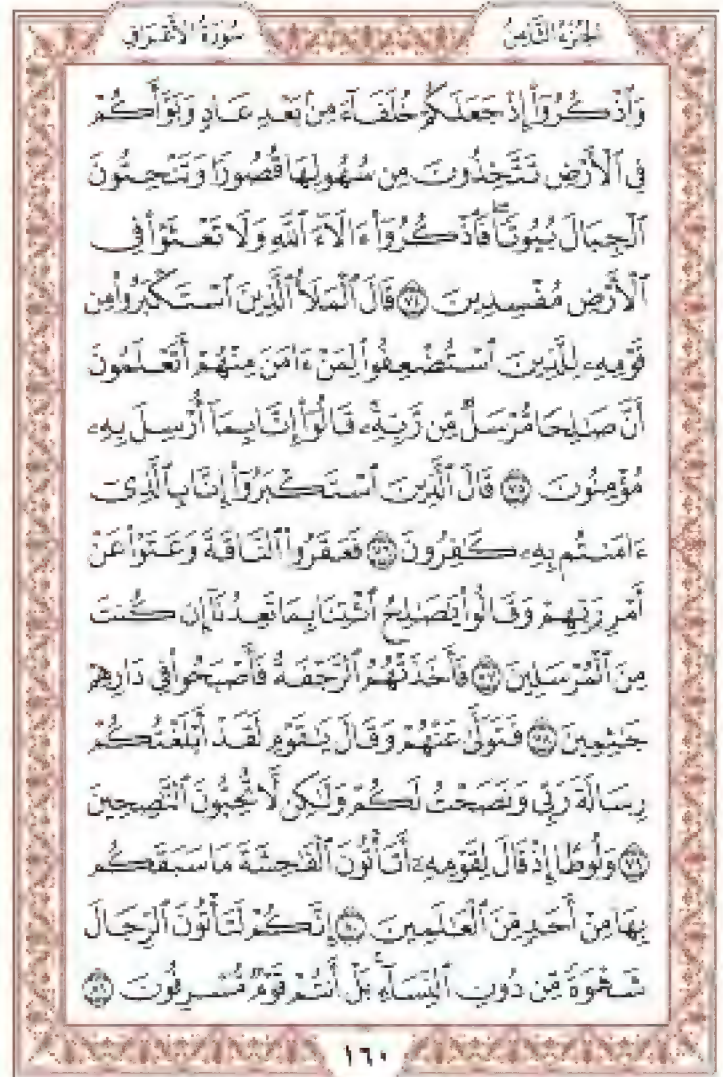 الجزء الثامن
سورة الأعراف
وَٱذْكُرُوٓا۟ إِذْ جَعَلَكُمْ خُلَفَآءَ مِنۢ بَعْدِ عَادٍ وَبَوَّأَكُمْ
فِى ٱلْأَرْضِ تَتَّخِذُونَ مِن سُهُولِهَا قُصُورًا وَتَنْحِتُونَ
ٱلْجِبَالَ بُيُوتًا ۖ فَٱذْكُرُوٓا۟ ءَالَآءَ ٱللَّهِ وَلَا تَعْثَوْا۟ فِى
ٱلْأَرْضِ مُفْسِدِينَ ﴿٧٤﴾ قَالَ ٱلْمَلَأُ ٱلَّذِينَ ٱسْتَكْبَرُوا۟ مِن
قَوْمِهِۦ لِلَّذِينَ ٱسْتُضْعِفُوا۟ لِمَنْ ءَامَنَ مِنْهُمْ أَتَعْلَمُونَ
أَنَّ صَٰلِحًا مُّرْسَلٌ مِّن رَّبِّهِۦ ۚ قَالُوٓا۟ إِنَّا بِمَآ أُرْسِلَ بِهِۦ
مُؤْمِنُونَ ﴿٧٥﴾ قَالَ ٱلَّذِينَ ٱسْتَكْبَرُوٓا۟ إِنَّا بِٱلَّذِىٓ
ءَامَنتُم بِهِۦ كَٰفِرُونَ ﴿٧٦﴾ فَعَقَرُوا۟ ٱلنَّاقَةَ وَعَتَوْا۟ عَنْ
أَمْرِ رَبِّهِمْ وَقَالُوا۟ يَٰصَٰلِحُ ٱئْتِنَا بِمَا تَعِدُنَآ إِن كُنتَ
مِنَ ٱلْمُرْسَلِينَ ﴿٧٧﴾ فَأَخَذَتْهُمُ ٱلرَّجْفَةُ فَأَصْبَحُوا۟ فِى دَارِهِمْ
جَٰثِمِينَ ﴿٧٨﴾ فَتَوَلَّىٰ عَنْهُمْ وَقَالَ يَٰقَوْمِ لَقَدْ أَبْلَغْتُكُمْ
رِسَالَةَ رَبِّى وَنَصَحْتُ لَكُمْ وَلَٰكِن لَّا تُحِبُّونَ ٱلنَّٰصِحِينَ
﴿٧٩﴾ وَلُوطًا إِذْ قَالَ لِقَوْمِهِۦٓ أَتَأْتُونَ ٱلْفَٰحِشَةَ مَا سَبَقَكُم
بِهَا مِنْ أَحَدٍ مِّنَ ٱلْعَٰلَمِينَ ﴿٨٠﴾ إِنَّكُمْ لَتَأْتُونَ ٱلرِّجَالَ
شَهْوَةً مِّن دُونِ ٱلنِّسَآءِ ۚ بَلْ أَنتُمْ قَوْمٌ مُّسْرِفُونَ ﴿٨١﴾
١٦٠